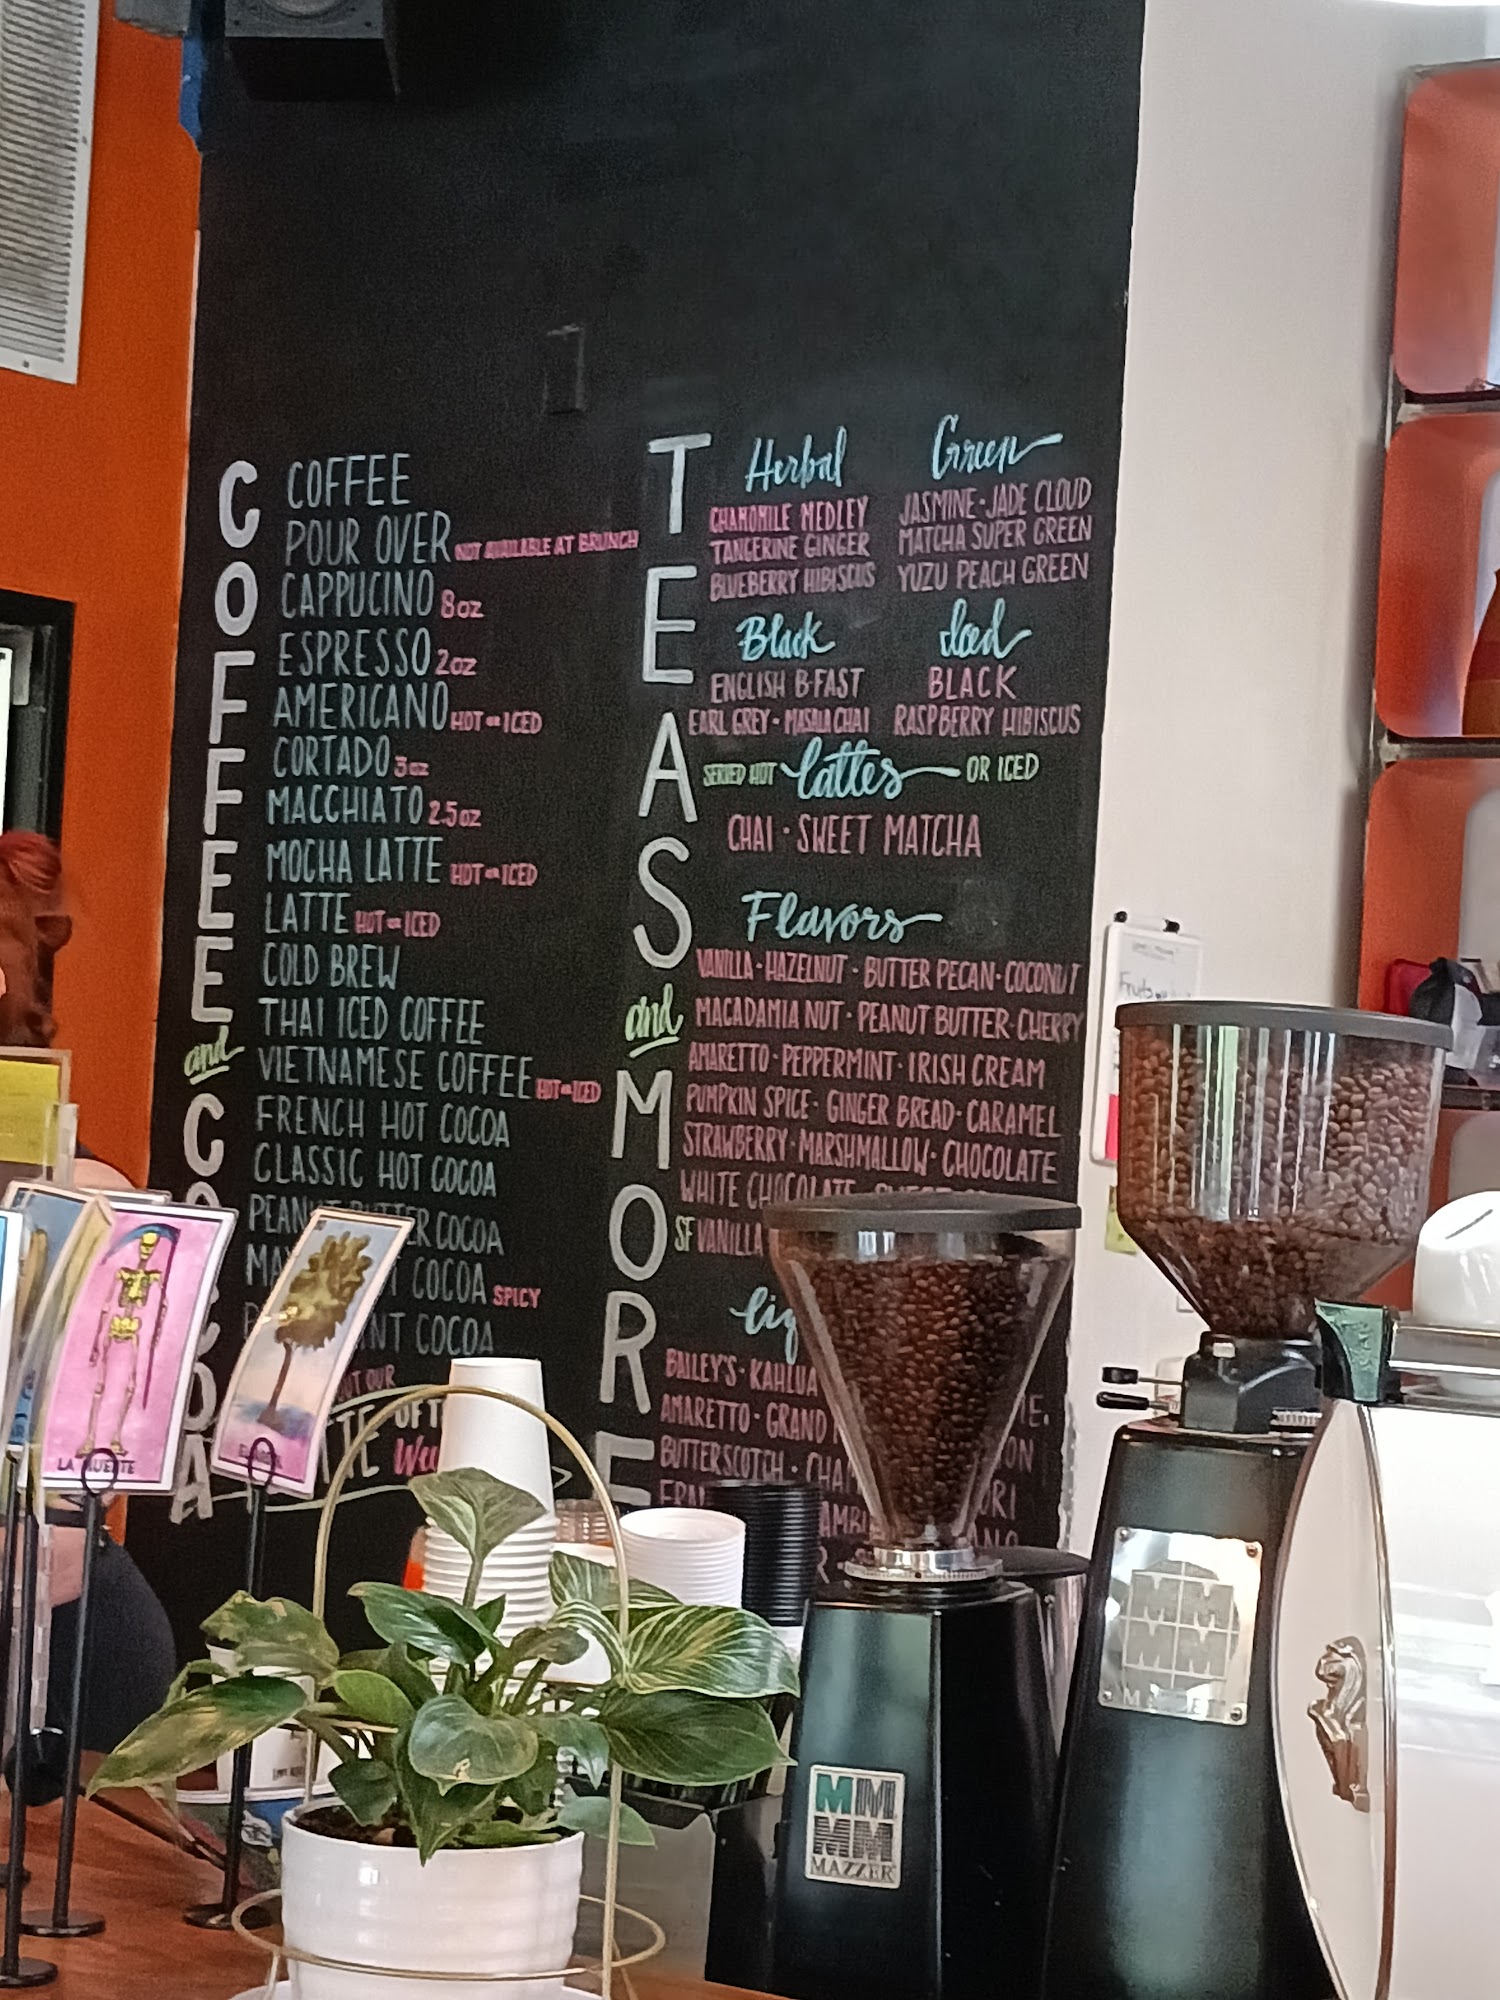 COFFEE and COCOA
COFFEE
POUR OVER NOT AVAILABLE AT BRUNCH
CAPPUCINO 8oz
ESPRESSO 2oz
AMERICANO HOT or ICED
CORTADO 3oz
MACCHIATO 2.5oz
MOCHA LATTE HOT or ICED
LATTE HOT or ICED
COLD BREW
THAI ICED COFFEE
VIETNAMESE COFFEE HOT or ICED
FRENCH HOT COCOA
CLASSIC HOT COCOA
COCOA
COCOA SPICY
COCOA
OUR
TEAS and MORE
Herbal
CHAMOMILE MEDLEY
TANGERINE GINGER
BLUEBERRY HIBISCUS
Green
JASMINE · JADE CLOUD
MATCHA SUPER GREEN
YUZU PEACH GREEN
Black
ENGLISH B-FAST
EARL GREY · MASALA CHAI
Iced
BLACK
RASPBERRY HIBISCUS
SERVED HOT lattes OR ICED
CHAI · SWEET MATCHA
Flavors
VANILLA · HAZELNUT · BUTTER PECAN · COCONUT
MACADAMIA NUT · PEANUT BUTTER · CHERRY
AMARETTO · PEPPERMINT · IRISH CREAM
PUMPKIN SPICE · GINGER BREAD · CARAMEL
STRAWBERRY · MARSHMALLOW · CHOCOLATE
WHITE CHOCOLATE
SF VANILLA
BAILEY'S · KAHLUA
AMARETTO · GRAND
BUTTERSCOTCH
LA MUERTE
MAZZER